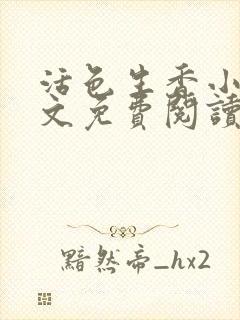 活色生香小
文免費閱讀
黯然帝_hx2